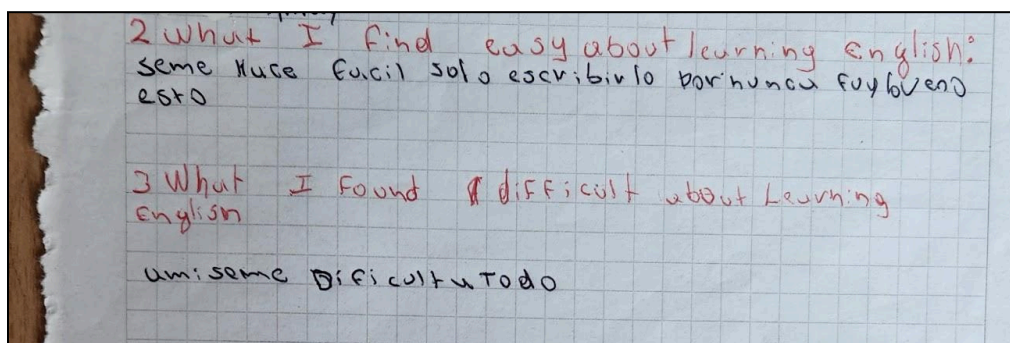 2 What I find easy about learning English:
seme Huce facil solo escribirlo por nunca fuy bueno
esto
3 What I found difficult about Learning
English
ami seme Dificulta Todo